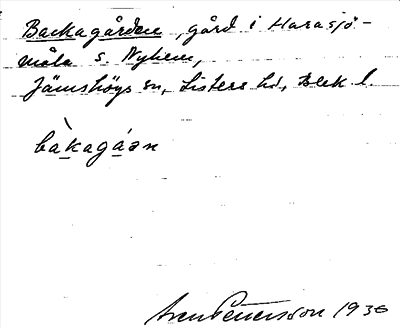 Backagården, gård i Harasjö-
måla s. Nyhem,
Jämshögs sn, Listers hd, Blek l.
bàkagáən
Sven Pettersson 1936